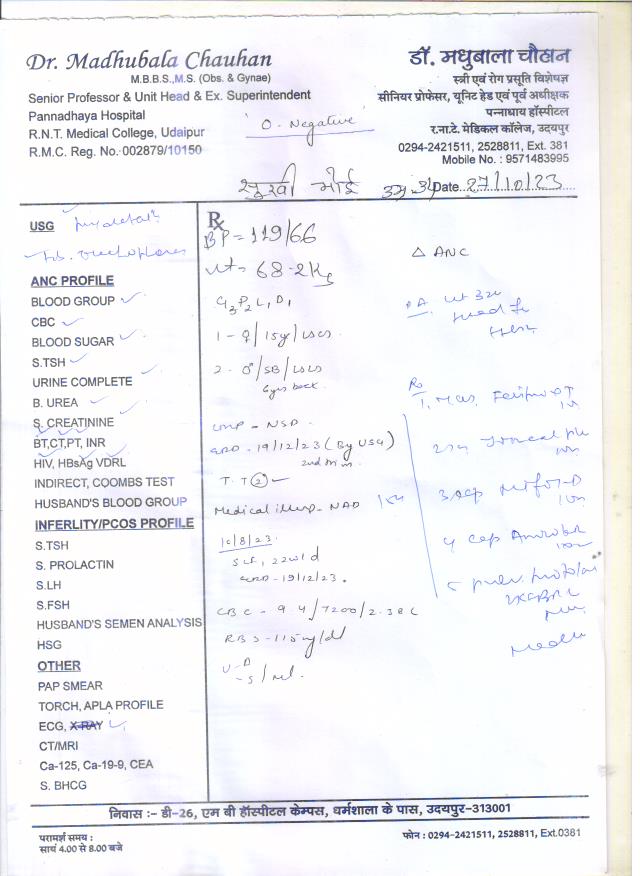 Dr. Madhubala Chauhan
M.B.B.S.,M.S. (Obs. & Gynae)
Senior Professor & Unit Head & Ex. Superintendent
Pannadhaya Hospital
R.N.T. Medical College, Udaipur
R.M.C. Reg. No.-002879/10150
डॉ. मधुबाला चौहान
स्त्री एवं रोग प्रसूति विशेषज्ञ
सीनियर प्रोफेसर, यूनिट हेड एवं पूर्व अधीक्षक
पन्नाधाय हॉस्पीटल
र.ना.टे. मेडिकल कॉलेज, उदयपुर
0294-2421511, 2528811, Ext. 381
Mobile No. : 9571483995
'O- Negative'
Date 27/10/23
USG
ANC PROFILE
BLOOD GROUP
CBC
BLOOD SUGAR
S.TSH
URINE COMPLETE
B. UREA
S. CREATININE
BT,CT,PT, INR
HIV, HBsAg VDRL
INDIRECT, COOMBS TEST
HUSBAND'S BLOOD GROUP
INFERLITY/PCOS PROFILE
S.TSH
S. PROLACTIN
S.LH
S.FSH
HUSBAND'S SEMEN ANALYSIS
HSG
OTHER
PAP SMEAR
TORCH, APLA PROFILE
ECG, X-RAY
CT/MRI
Ca-125, Ca-19-9, CEA
S. BHCG
Rx
BP = 119/66
wt = 68.2 Kg
G3P2L1D1
1 - ♀/15yr/LSCS
2 - /SB/LSCS
6yrs back
LMP - NSD
EDD - 19/12/23 (By USG)
T.T (2)
Medical illness - NAD
10/8/23
SLF, 22w1d
EDD - 19/12/23.
CBC - 9.4/7200/2.38L
RBS - 115mg/dl
△ ANC
निवास :- डी-26, एम बी हॉस्पीटल केम्पस, धर्मशाला के पास, उदयपुर-313001
परामर्श समय :
सायं 4.00 से 8.00 बजे
फोन : 0294-2421511, 2528811, Ext.0381